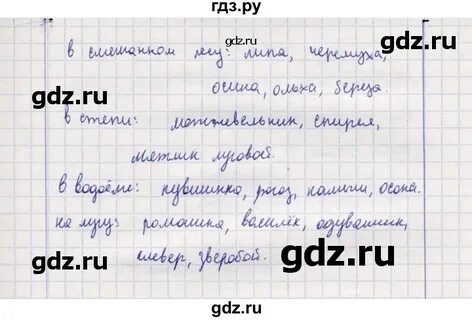 гдз.ру
в смешанном лесу: липа, черемуха,
осина, ольха, береза.
gdz.ru gdz.ru
в степи: можжевельник, спирея,
мятлик луговой.
gdz.ru
в водоёме: кувшинка, рогоз, камыш, осока.
на лугу: ромашка, василёк, одуванчик,
клевер, зверобой.
gdz.ru gdz.ru
gdz.ru